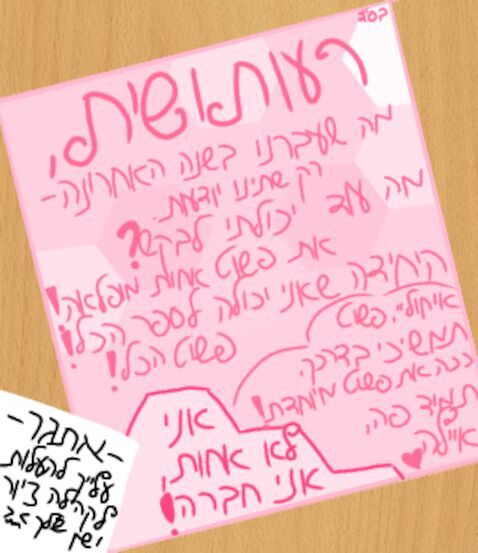 בס"ד
רעותושית,
מה שעברנו בשנה האחרונה-
רק שתינו יודעות.
מה עוד יכולתי לבקש?
את פשוט אחות מופלאה!
היחידה שאני יכולה לספר הכל!
פשוט הכל!
איחולי, פשוט
תמשיכי בדרכך.
ככה את פשוט מיוחדת!
תמיד פה,
איילה
אני
לא אחות,
אני חברה!
-אתגר-
עליך להעלות
לקהילה ציור
ישן שלך